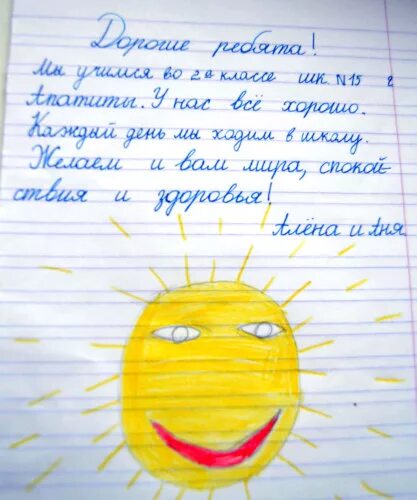 Дорогие ребята!
Мы учимся во 2е классе шк. N15 г
Апатиты. У нас всё хорошо.
Каждый день мы ходим в школу.
Желаем и вам мира, спокой-
ствия и здоровья!
Алёна и Аня